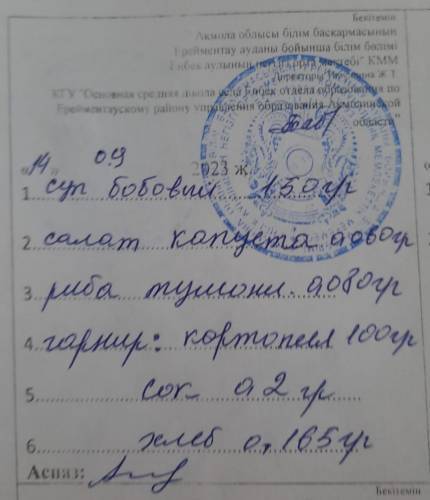 Бекітемін
Ақмола облысы білім басқармасының
Ерейментау ауданы бойынша білім бөлімі
Еңбек ауылының негізгі орта мектебі" КММ
Директоры Ж Т
КГУ "Основная средняя школа села Еңбек отдела образования по
Ерейментаускому району управления образования Акмолинской
области"
"14" 09 2023 ж.
1. суп бобовый 150гр
2. салат капуста 0060гр
3. риба тушони. 0080гр
4. гарнир: кортопел 100гр
5. сок 02 гр
6. хлеб 0,165гр
Аспаз:
Бекітемін